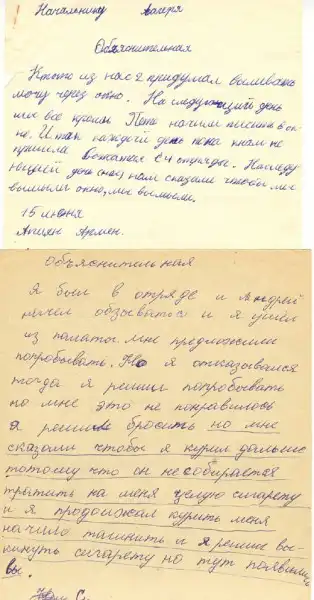 Начальнику лагеря
Объяснительная
Ктото из нас 2 придумал выливать
мочу через окно. На следующий день
мы все кроме Пети начили писить в ок-
не. И так каждый день пока к нам не
пришла Вожатая с 4 отряда. На следу-
ющий день нам сказали чтобы мы
вымыли окно, мы вымыли.
15 июня
Армен.
Объяснительная
Я был в отряде и Андрей
начел обзыватся и я ушёл
из палаты. мне предложили
попробывать. Но я отказывался
тогда я решил попробывать
но мне это не понравилось
я решил бросить но мне
сказали чтобы я курил дальше
потомучто он не собирается
тратить на меня целую сигарету
и я продолжал курить меня
начило ташнить и я решил вы-
кинуть сигарету но тут появились
вы.